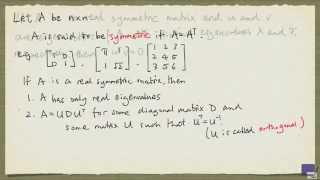 Let A be nxn real symmetric matrix and u and v
A is said to be symmetric if A = Aᵀ. eigenvalues λ and
e.g. [0 0 0 1], [π 1 1 √2], [1 2 3 2 4 5 3 5 6]
If A is a real symmetric matrix, then
1. A has only real eigenvalues
2. A = UDUᵀ for some diagonal matrix D and
some matrix U such that Uᵀ = U⁻¹
(U is called orthogonal)